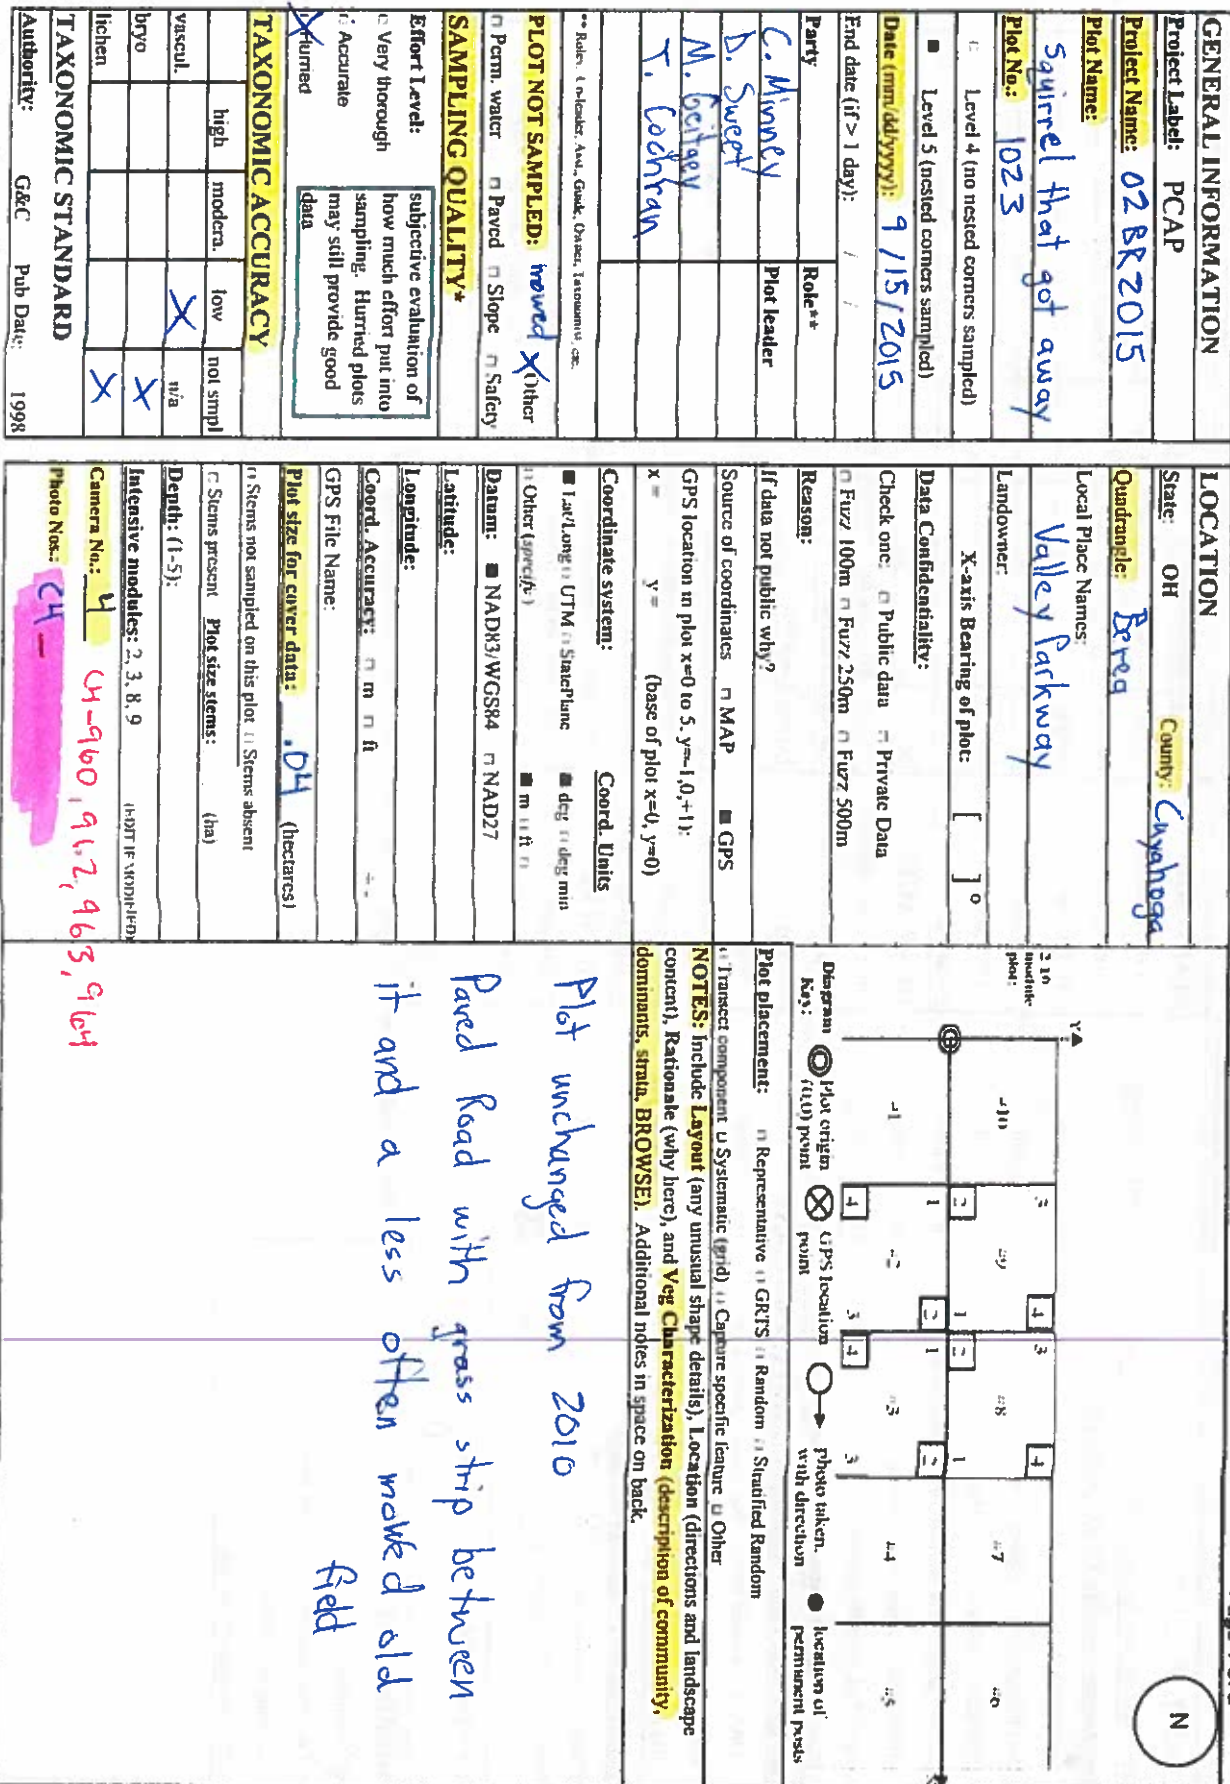 GENERAL INFORMATION
Project Label: PCAP
Project Name: 02 BR2015
Plot Name:
Squirrel that got away
Plot No.: 1023
Level 4 (no nested corners sampled)
■ Level 5 (nested corners sampled)
Date (mm/dd/yyyy): 9/15/2015
End date (if > 1 day): / /
Party Role**
C. Minney Plot leader
D. Sweet
M.
T. Cochran
** Roles: Co-leader, Asst., Guide, Owner, Taxonomist, etc.
PLOT NOT SAMPLED: mowed X Other
□ Perm. water □ Paved □ Slope □ Safety
SAMPLING QUALITY*
Effort Level:
Very thorough
Accurate
X Hurried
subjective evaluation of
how much effort put into
sampling. Hurried plots
may still provide good
data
TAXONOMIC ACCURACY
high modera. low not smpl
vascul. X n/a
bryo X
lichen X
TAXONOMIC STANDARD
Authority: G&C Pub Date: 1998
LOCATION
State: OH County: Cuyahoga
Quadrangle: Berea
Local Place Names:
Valley Parkway
Landowner:
X-axis Bearing of plot: [ ] °
Data Confidentiality:
Check one: □ Public data □ Private Data
□ Fuzz 100m □ Fuzz 250m □ Fuzz 500m
Reason:
If data not public why?
Source of coordinates □ MAP ■ GPS
GPS location in plot x=0 to 5, y=-1,0,+1):
x = y = (base of plot x=0, y=0)
Coordinate system: Coord. Units
■ Lat/Long □ UTM □ StatePlane ■ deg □ deg min
□ Other (specify) ■ m □ ft □
Datum: ■ NAD83/WGS84 □ NAD27
Latitude:
Longitude:
Coord. Accuracy: □ m □ ft
GPS File Name:
Plot size for cover data: .04 (hectares)
□ Stems not sampled on this plot □ Stems absent
□ Stems present Plot size stems: (ha)
Depth: (1-5):
Intensive modules: 2, 3, 8, 9 (EDIT IF MODIFIED)
Camera No.: 4 C4-960, 962, 963, 964
Photo Nos.: C4 -
N
Y
2 10
module
plot:
-10 3 #9 4 3 #8 4 #7 #6
2 1 2 1
-1 1 #2 2 1 #3 2 #4 #5
4 3 4 3
Diagram Key: Plot origin (0,0) point GPS location point photo taken, with direction location of permanent posts
Plot placement: □ Representative □ GRTS □ Random □ Stratified Random
□ Transect component □ Systematic (grid) □ Capture specific feature □ Other
NOTES: Include Layout (any unusual shape details), Location (directions and landscape
content), Rationale (why here), and Veg Characterization (description of community,
dominants, strata, BROWSE). Additional notes in space on back.
Plot unchanged from 2010
Paved Road with grass strip between
it and a less often mowed old
field